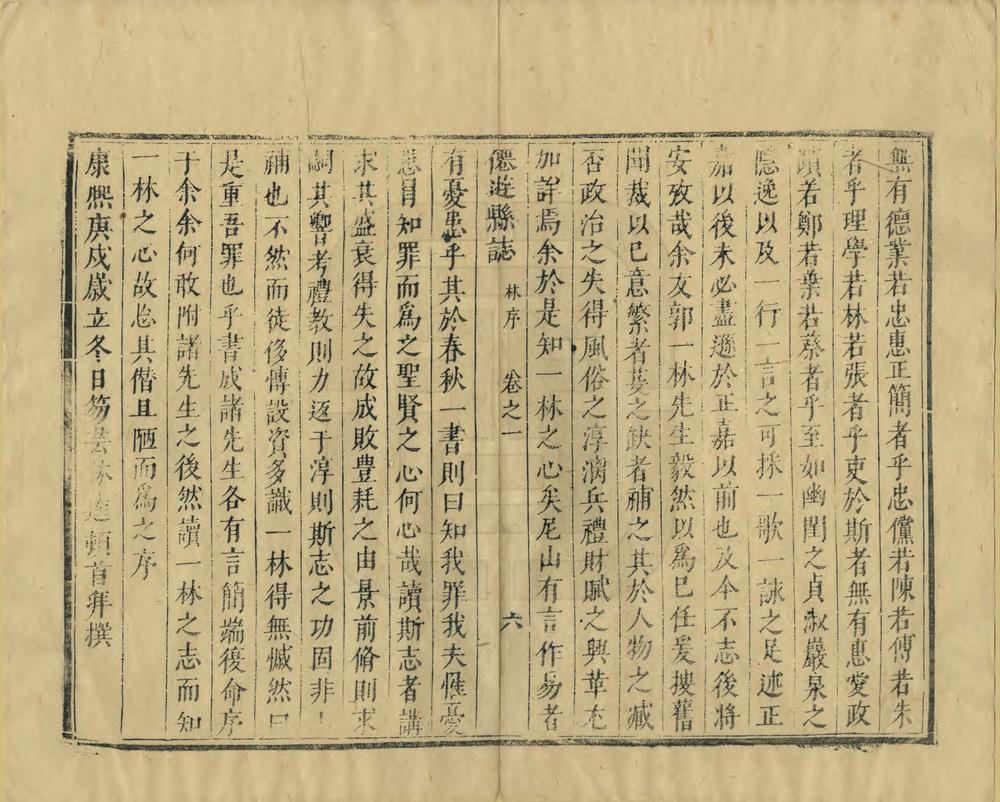 無有德業若忠惠正簡者乎忠儻若陳若傅若朱
者乎理學若林若張者乎吏於斯者無有惠愛政
蹟若鄭若葉若蔡者乎至如幽閨之貞淑巖泉之
隱逸以及一行一言之可採一歌一詠之足述正
嘉以後未必盡遜於正嘉以前也及今不志後將
安攷哉余友郭一林先生毅然以為己任爰搜舊
聞裁以己意繁者芟之缺者補之其於人物之臧
否政治之失得風俗之淳漓兵禮財賦之興革尤
加詳焉余於是知一林之心矣尼山有言作易者
僊遊縣誌 林序 卷之一 六
有憂患乎其於春秋一書則曰知我罪我夫惟憂
患冐知罪而為之聖賢之心何心哉讀斯志者講
求其盛衰得失之故成敗豊耗之由景前脩則求
嗣其響考禮教則力返于淳則斯志之功固非
補也不然而徒侈傳設資多識一林得無憾然曰
是重吾罪也乎書成諸先生各有言簡端復命序
于余余何敢附諸先生之後然讀一林之志而知
一林之心故忘其僭且陋而為之序
康熙庚戍歲立冬日笏雲林 頓首拜撰